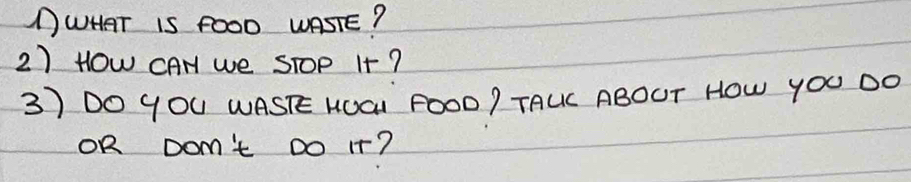 1) WHAT IS FOOD WASTE?
2) HOW CAN WE STOP IT?
3) DO YOU WASTE MUCH FOOD? TALK ABOUT HOW YOU DO
OR DOM't DO IT?